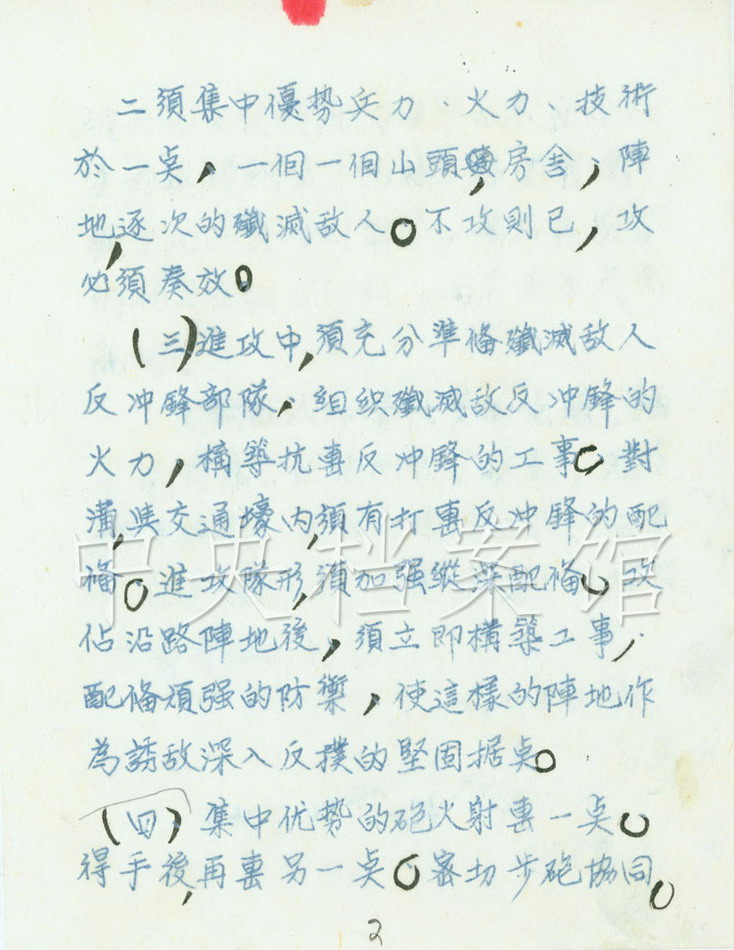 二須集中優势兵力、火力、技術
於一桌，一個一個山頭，房舍，陣
地，逐次的殲滅敌人。不攻則已，攻
必須奏效。
（三）進攻中，須充分準俻殲滅敌人
反冲鋒部隊，組织殲滅敌反冲鋒的
火力，構築抗軎反冲鋒的工事。對
溝，與交通壕内，須有打軎反冲鋒的配
俻。進攻隊形，須加强縱深配俻。攻
佔沿路陣地後，須立即構築工事，
配俻頑强的防禦，使這樣的陣地作
為誘敌深入反撲的堅固据桌。
（四）集中优势的砲火射軎一桌。
得手後，再軎另一桌。密切步砲協同。
2
中央档案馆